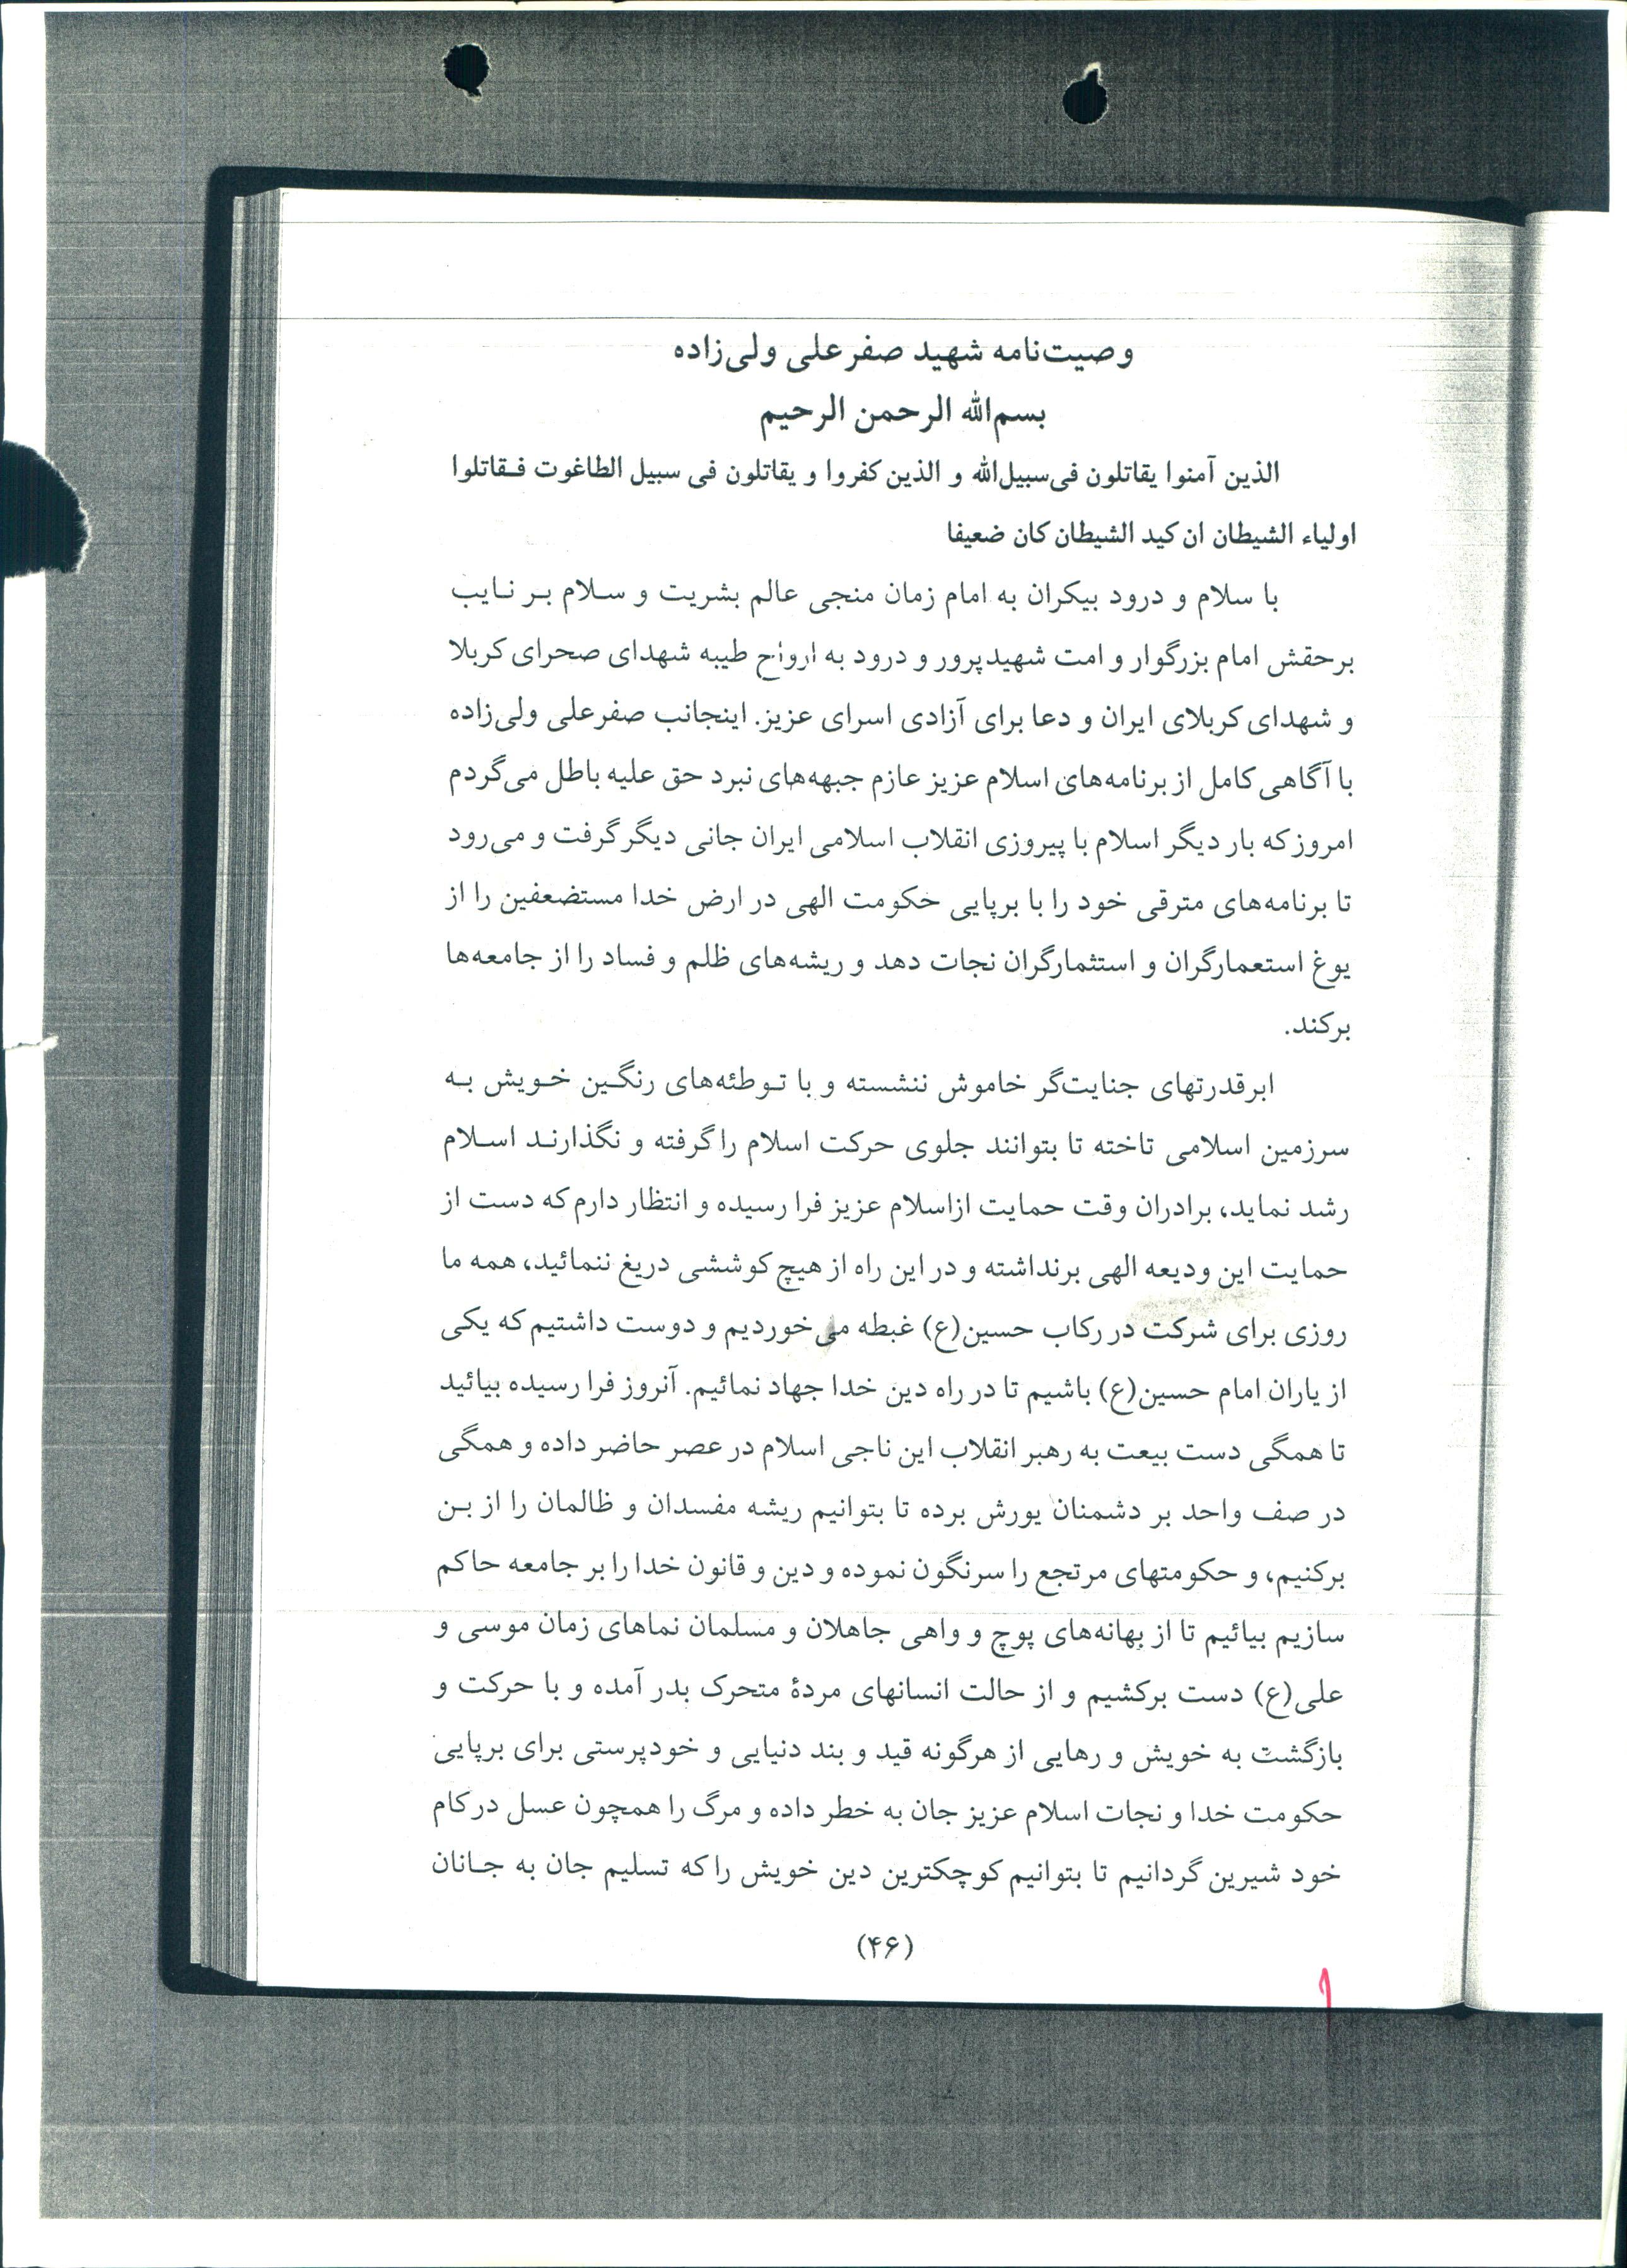 وصیت‌نامه شهید صفرعلی ولی‌زاده
بسم‌الله الرحمن الرحیم
الذین آمنوا یقاتلون فی‌سبیل‌الله و الذین کفروا و یقاتلون فی سبیل الطاغوت فقاتلوا
اولیاء الشیطان ان کید الشیطان کان ضعیفا
با سلام و درود بیکران به امام زمان منجی عالم بشریت و سلام بر نایب
برحقش امام بزرگوار و امت شهیدپرور و درود به ارواح طیبه شهدای صحرای کربلا
و شهدای کربلای ایران و دعا برای آزادی اسرای عزیز. اینجانب صفرعلی ولی‌زاده
با آگاهی کامل از برنامه‌های اسلام عزیز عازم جبهه‌های نبرد حق علیه باطل می‌گردم
امروز که بار دیگر اسلام با پیروزی انقلاب اسلامی ایران جانی دیگر گرفت و می‌رود
تا برنامه‌های مترقی خود را با برپایی حکومت الهی در ارض خدا مستضعفین را از
یوغ استعمارگران و استثمارگران نجات دهد و ریشه‌های ظلم و فساد را از جامعه‌ها
برکند.
ابرقدرتهای جنایت‌گر خاموش ننشسته و با توطئه‌های رنگین خویش به
سرزمین اسلامی تاخته تا بتوانند جلوی حرکت اسلام را گرفته و نگذارند اسلام
رشد نماید، برادران وقت حمایت ازاسلام عزیز فرا رسیده و انتظار دارم که دست از
حمایت این ودیعه الهی برنداشته و در این راه از هیچ کوششی دریغ ننمائید، همه ما
روزی برای شرکت در رکاب حسین(ع) غبطه می‌خوردیم و دوست داشتیم که یکی
از یاران امام حسین(ع) باشیم تا در راه دین خدا جهاد نمائیم. آنروز فرا رسیده بیائید
تا همگی دست بیعت به رهبر انقلاب این ناجی اسلام در عصر حاضر داده و همگی
در صف واحد بر دشمنان یورش برده تا بتوانیم ریشه مفسدان و ظالمان را از بن
برکنیم، و حکومتهای مرتجع را سرنگون نموده و دین و قانون خدا را بر جامعه حاکم
سازیم بیائیم تا از بهانه‌های پوچ و واهی جاهلان و مسلمان نماهای زمان موسی و
علی(ع) دست برکشیم و از حالت انسانهای مردهٔ متحرک بدر آمده و با حرکت و
بازگشت به خویش و رهایی از هرگونه قید و بند دنیایی و خودپرستی برای برپایی
حکومت خدا و نجات اسلام عزیز جان به خطر داده و مرگ را همچون عسل در کام
خود شیرین گردانیم تا بتوانیم کوچکترین دین خویش را که تسلیم جان به جانان
(۴۶)